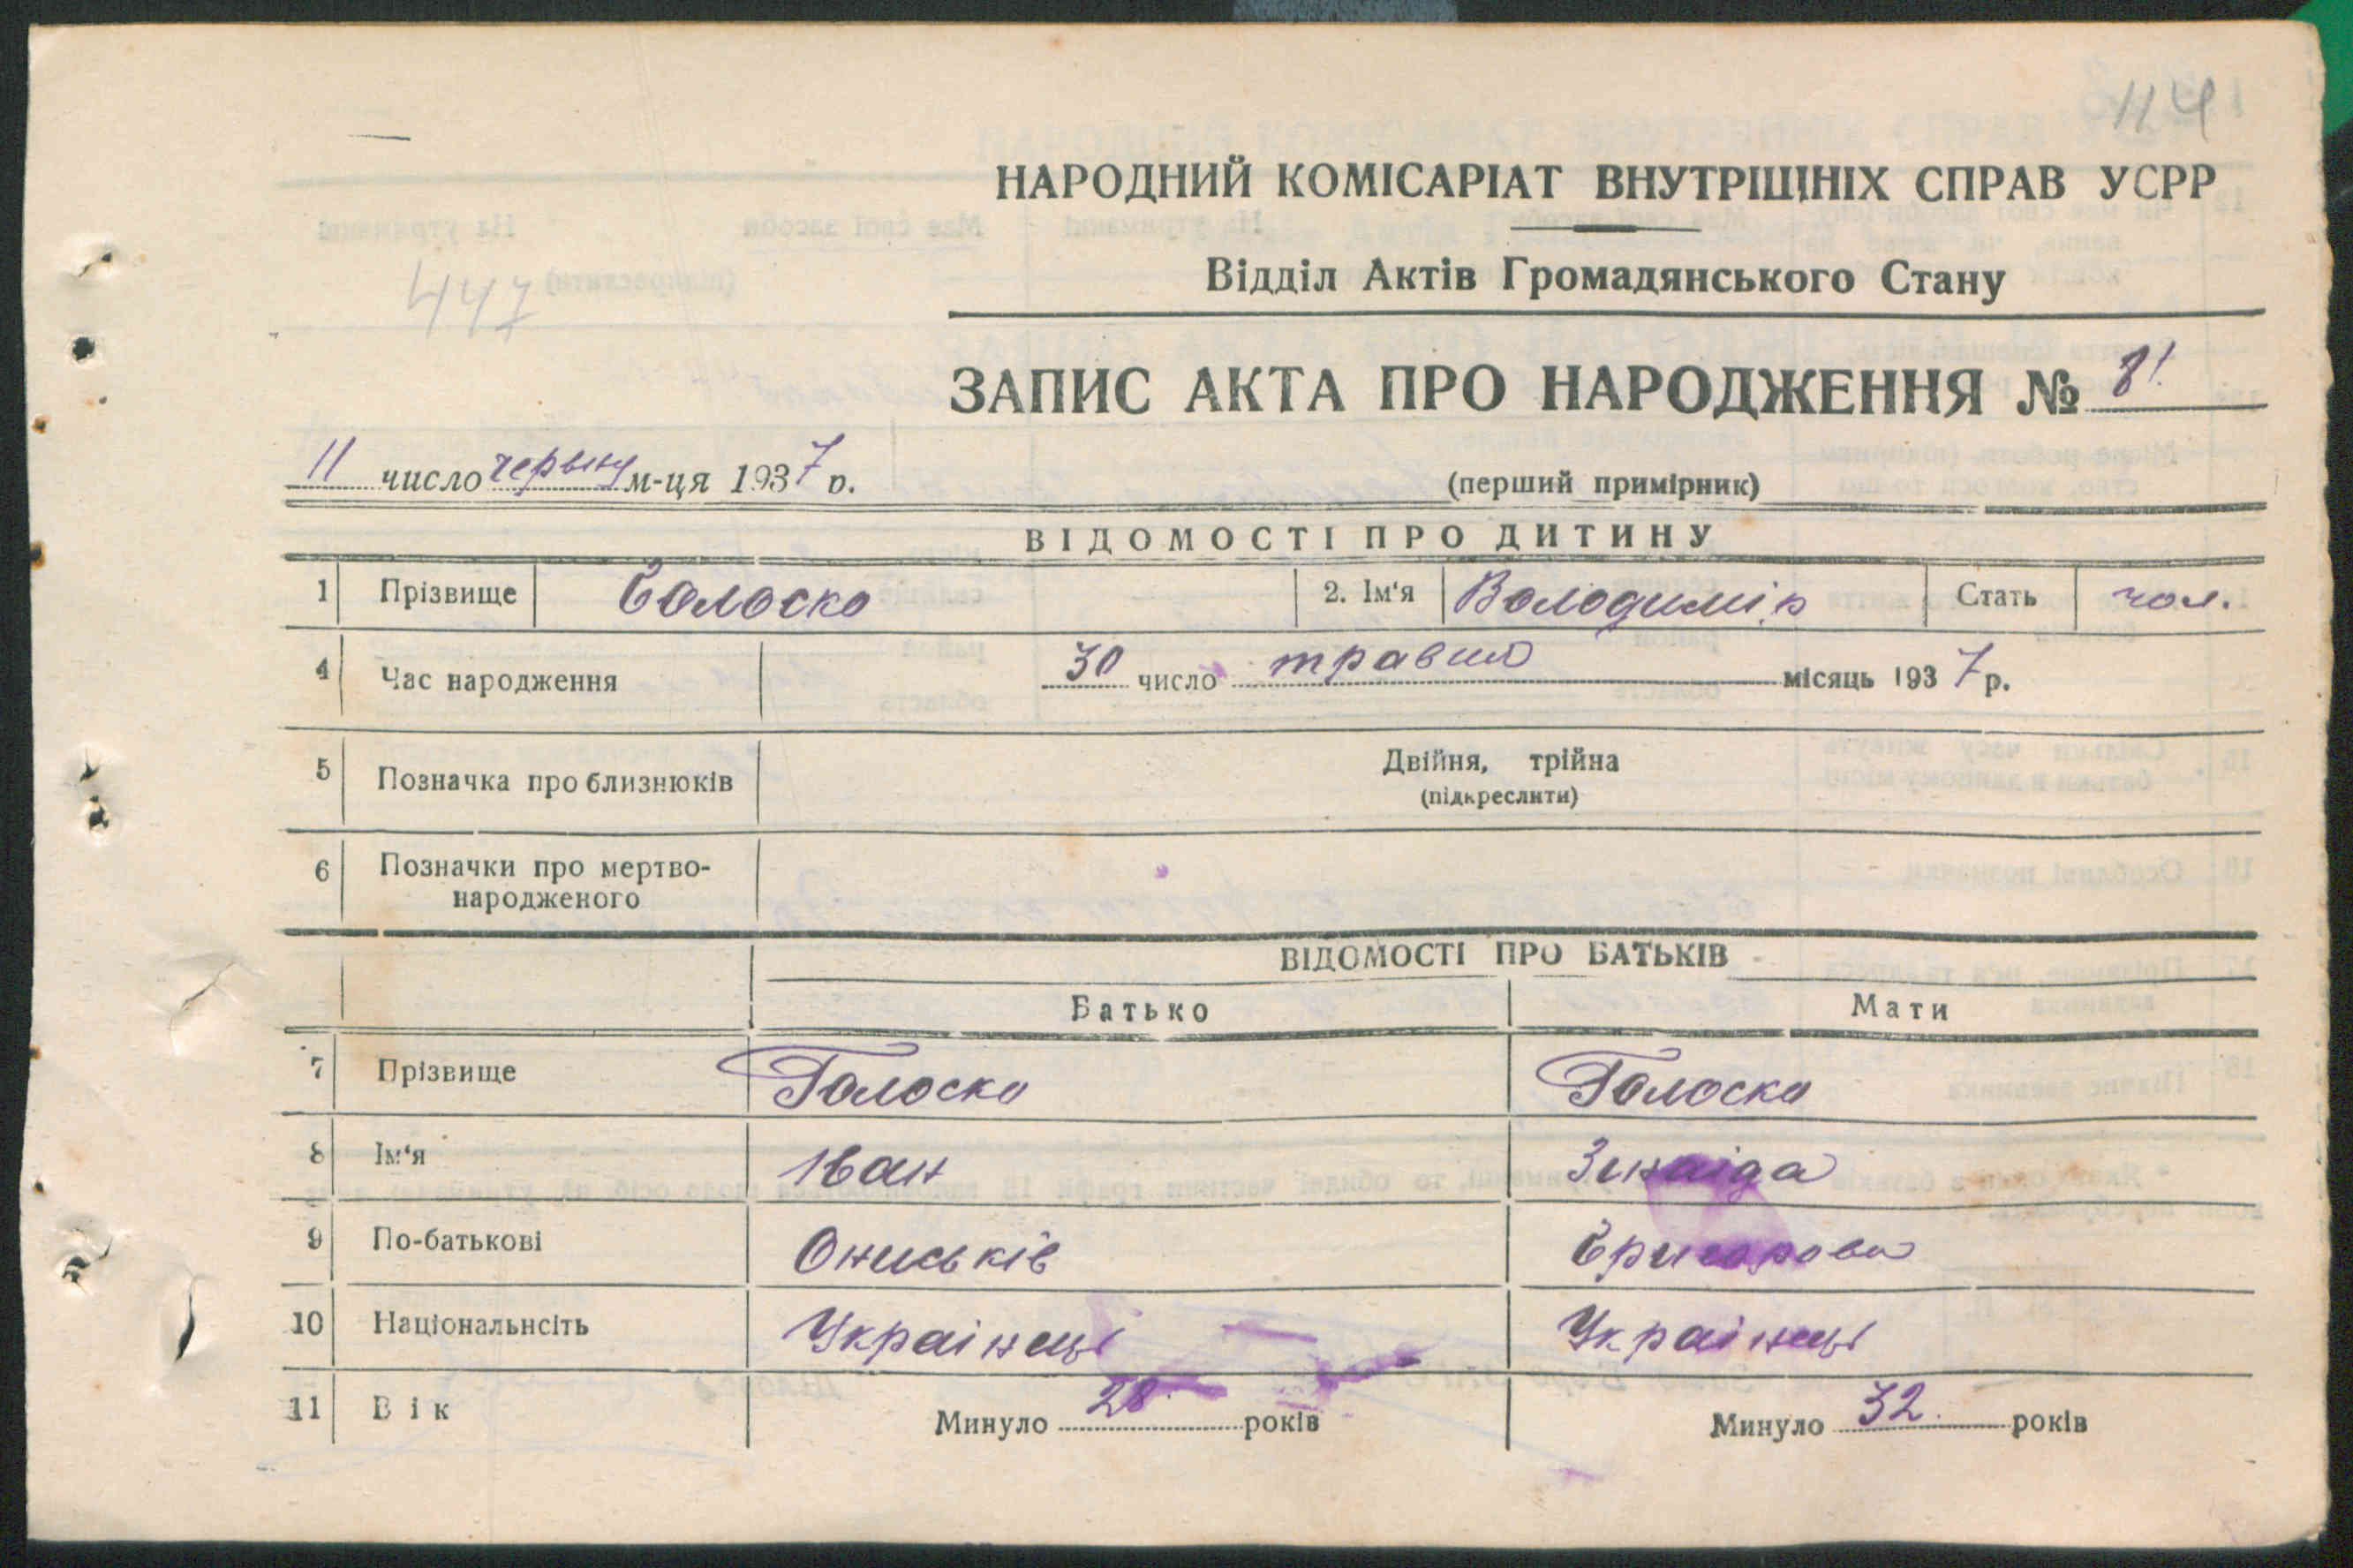 114
НАРОДНИЙ КОМІСАРІАТ ВНУТРІШНІХ СПРАВ УСРР
Відділ Актів Громадянського Стану
447
ЗАПИС АКТА ПРО НАРОДЖЕННЯ № 81
11 число червня м-ця 1937 р.
(перший примірник)
ВІДОМОСТІ ПРО ДИТИНУ
1 Прізвище Голоско 2. Ім'я Володимір Стать чол.
4 Час народження 30 число травня місяць 1937 р.
5 Позначка про близнюків Двійня, трійна
(підкреслити)
6 Позначки про мертво-
народженого
ВІДОМОСТІ ПРО БАТЬКІВ
Батько Мати
7 Прізвище Голоско Голоско
8 Ім'я Іван Зинаіда
9 По-батькові Ониськів Григорова
10 Національнсіть Украінець Украінець
11 Вік Минуло 28 років Минуло 32 років